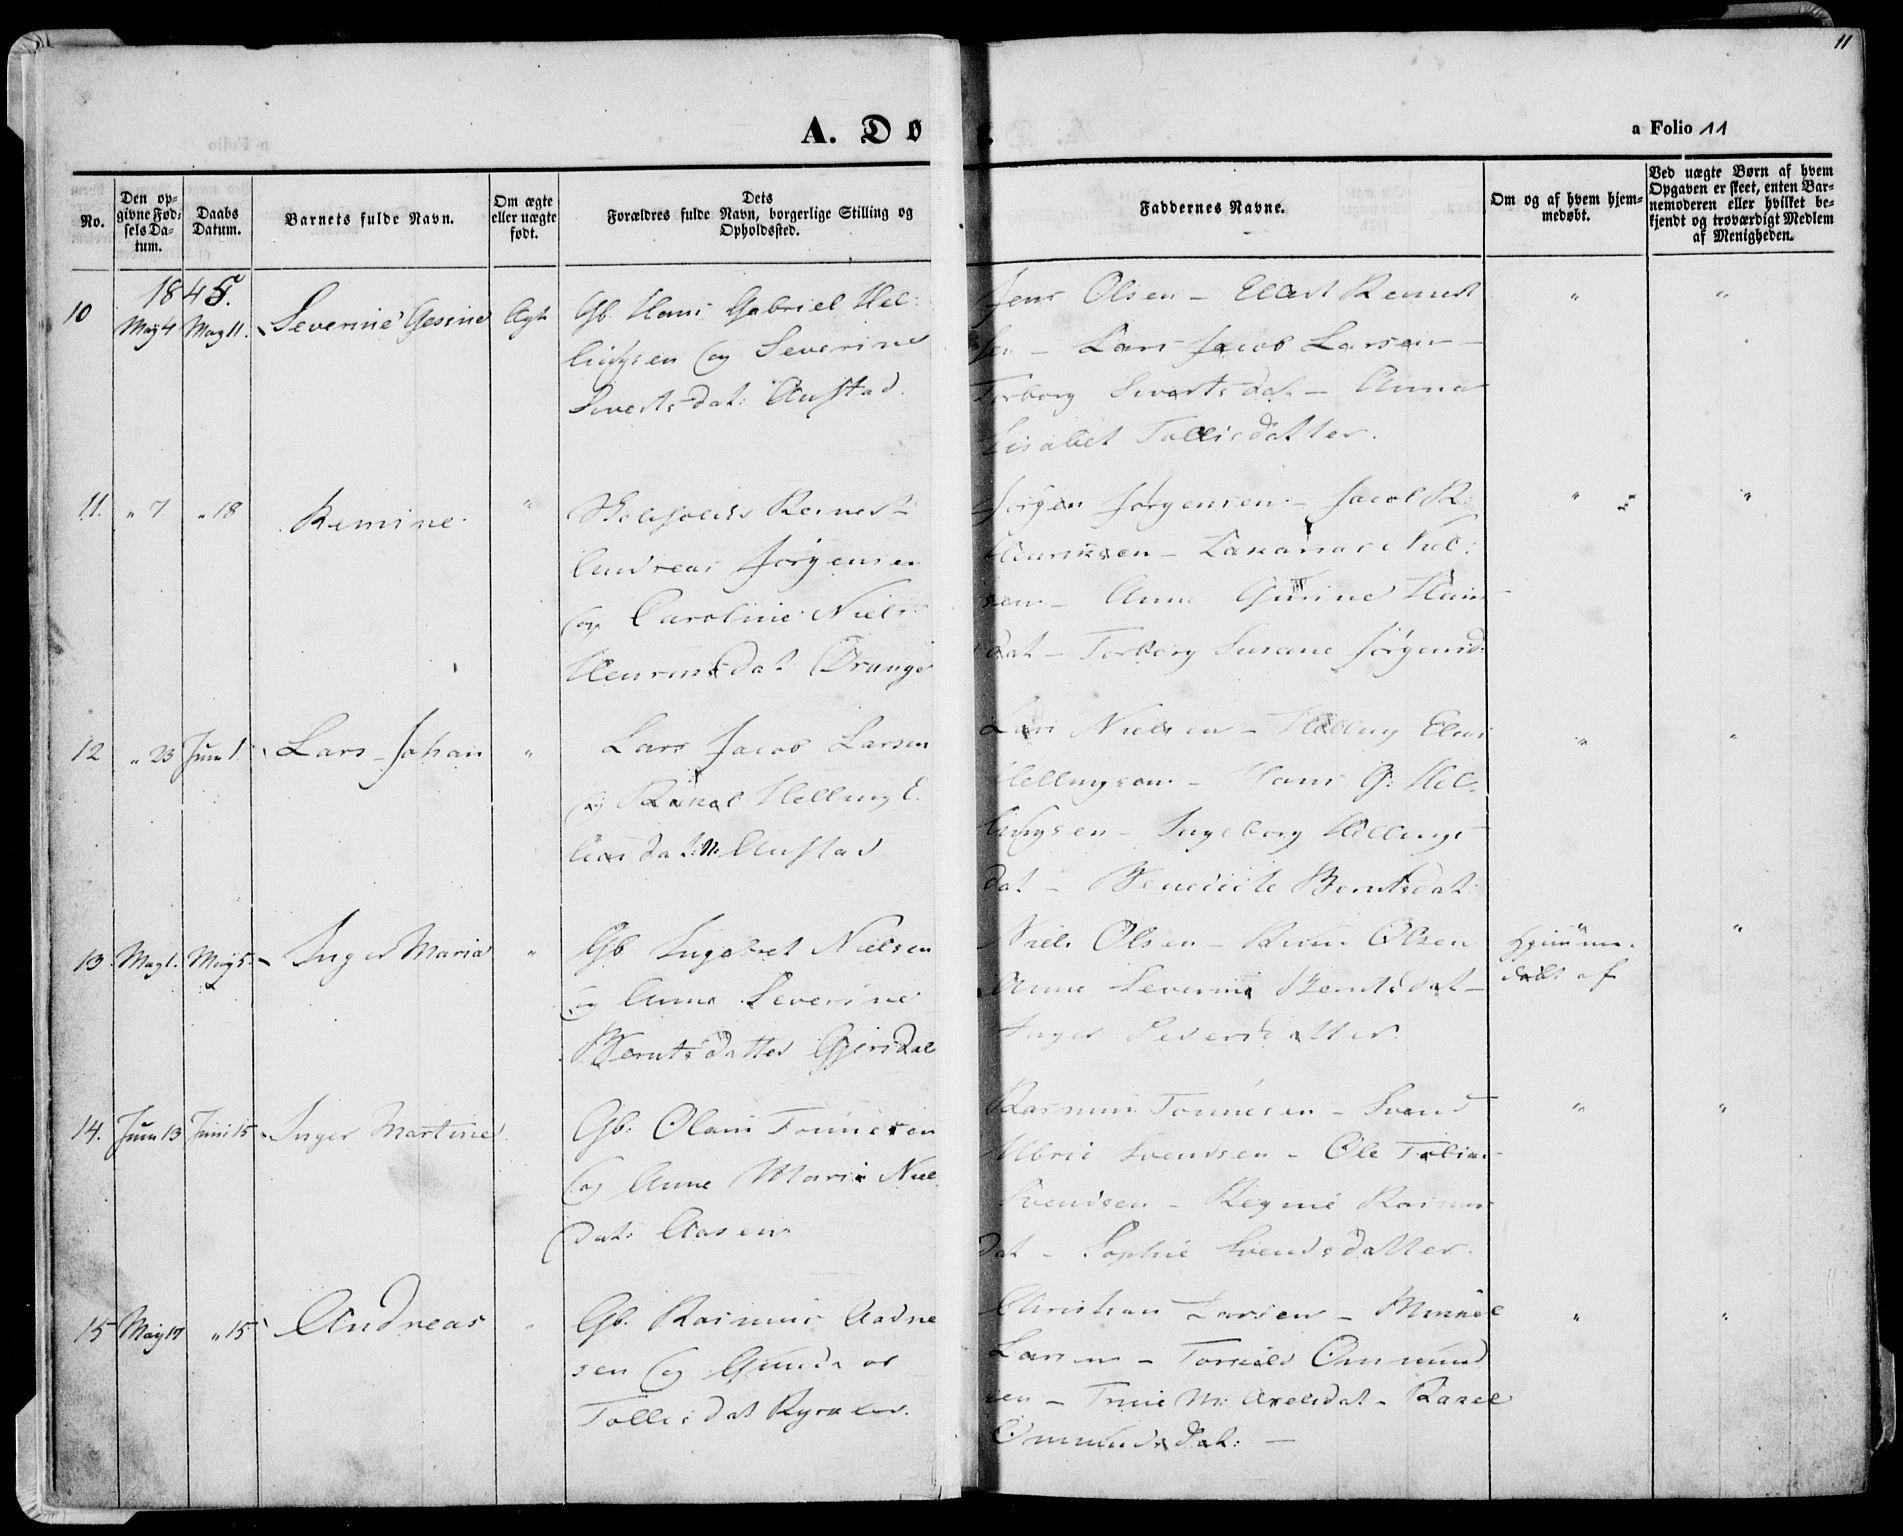 11
A. Dø
a Folio 11
No.
Den op-
givne Fød-
sels Da-
tum.
Daabs
Datum.
Barnets fulde Navn.
Om ægte
eller uægte
født.
Dets
Forældres fulde Navn, borgerlige Stilling og
Opholdssted.
Faddernes Navne.
Om og af hvem hjem-
medøbt.
Ved uægte Børn af hvem
Opgaven er skeet, enten Bar-
nemoderen eller hvilket be-
kjendt og troværdigt Medlem
af Menigheden.
1845.
10 May 4 May 11. Severine Gesine Ægt. Gb. Hans Gabriel Hel:
lingsen og Severine
Sivertsdat: Austad.
Jens Olsen - Reinert
sen - Lars Jacob Larsen -
Torborg Sivertsdat - Anna
Lisabet Tollisdatter.
" "
11. " 7 " 18 Remine "
Andreas Jørgensen
og Caroline Niel:
Drange
Jørgen Jørgensen - Jacob R:
Henriksen - Zakarias Niel:
sen - Anne Gurine Hans
dat - Torborg Susane Jørgensd:
" "
12 " 23 Juni 1. Lars Johan " Lars Jacob Larsen
og Rakel Helling E.
dat: Austad
Lars Nielsen - Helling Elias
Hellingsen - Hans G: Hel-
lingsen - Ingeborg Hellings
dat - Benedicte Berntsdat:
" "
13. May 1. May 5. Inger Maria " Gb. Ingebret Nielsen
og Anne Severine
Berntsdatter Gjersdal
Niels Olsen - Olsen
Anne Severine Berntsdat -
Inger Pedersdatter
Hjemme-
døbt af
" "
14. Juni 13 Juni 15 Inger Martine Gb: Olaus Tønnesen
og Anne Marie Niel
dat: Aasen
Rasmus Tønnesen - Svend
Ulbric Svendsen - Ole Tobias
Svendsen - Regine Rasmus
dat - Sophie Svendsdatter.
" "
15 May 17 " 15 Andreas " Gb. Rasmus Aadne
sen og
Tollisdat
Christian Larsen - Mikkel
Larsen - Torkild Ommund
sen - Trine M: Axelsdat - Rakel
Ommundsdat: -
" "